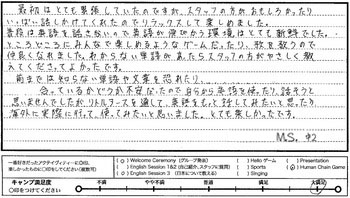 最初はとても緊張していたのですが、スタッフの方がおもしろかったり
いっぱい話しかけてくれたのでリラックスして楽しめました。
普段は英語を話さないので英語が飛びかう環境はとても新鮮でした。
ところどころにみんなで楽しめるようなゲームだったり、歌を歌うので
仲良くなれました。わからない単語があったらスタッフの方がやさしく教
えてくださってよかったです。
前までは知らない単語や文章を恐れたり、
合っているかどうか不安だったので自分から英語を使ったり、話そうと
思いませんでしたがリトルヲーズを通して、英語をもっと話してみたいと思ったり
海外に実際に行って、使ってみたいと思いました。とても楽しかったです。
M.S. 中2
一番好きだったアクティヴィティーに○印、
楽しかったものに○印をしてください(複数可)
(○) Welcome Ceremony (グループ発表) ( ) Hello ゲーム ( ) Presentation
( ) English Session 1&2 (自己紹介、スタッフに質問) ( ) Sports (○) Human Chain Game
(○) English Session 3 (日本について教える) ( ) Singing
キャンプ満足度
○印をつけてください
不満 やや不満 普通 満足 大満足